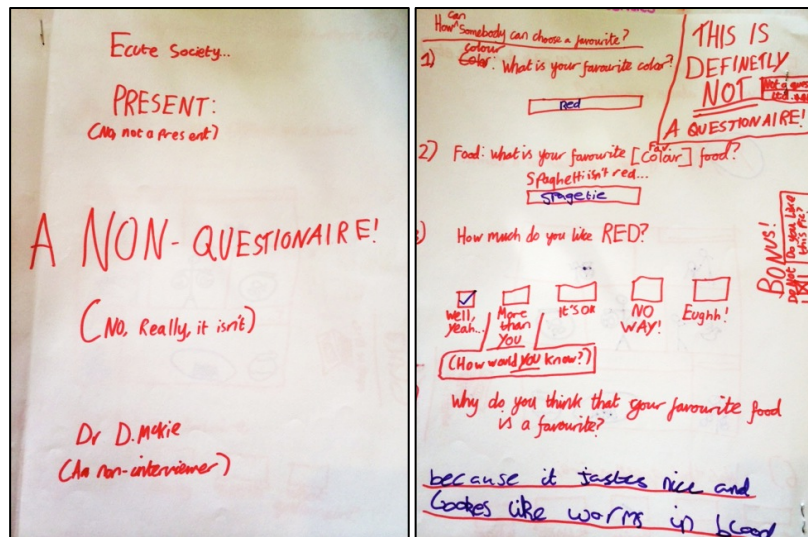 Ecute Society...
PRESENT:
(No, not a present)
A NON-QUESTIONAIRE!
(No, Really, it isn't)
Dr D. McKie
(An non-interviewer)
can
How Somebody can choose a favourite?
colour
1) Color: What is your favourite color?
Red
THIS IS
DEFINETLY
NOT
A QUESTIONAIRE!
2) Food: What is your favourite [colour] food?
Fav.
Spaghetti isn't red...
Spagetie
How much do you like RED?
Well, yeah...
More than YOU
It's OK
NO WAY!
Eughh!
(How would you know?)
BONUS!
Do you like
this Pic?
Why do you think that your favourite food
is a favourite?
because it tastes nice and
Lookes like worms in blood